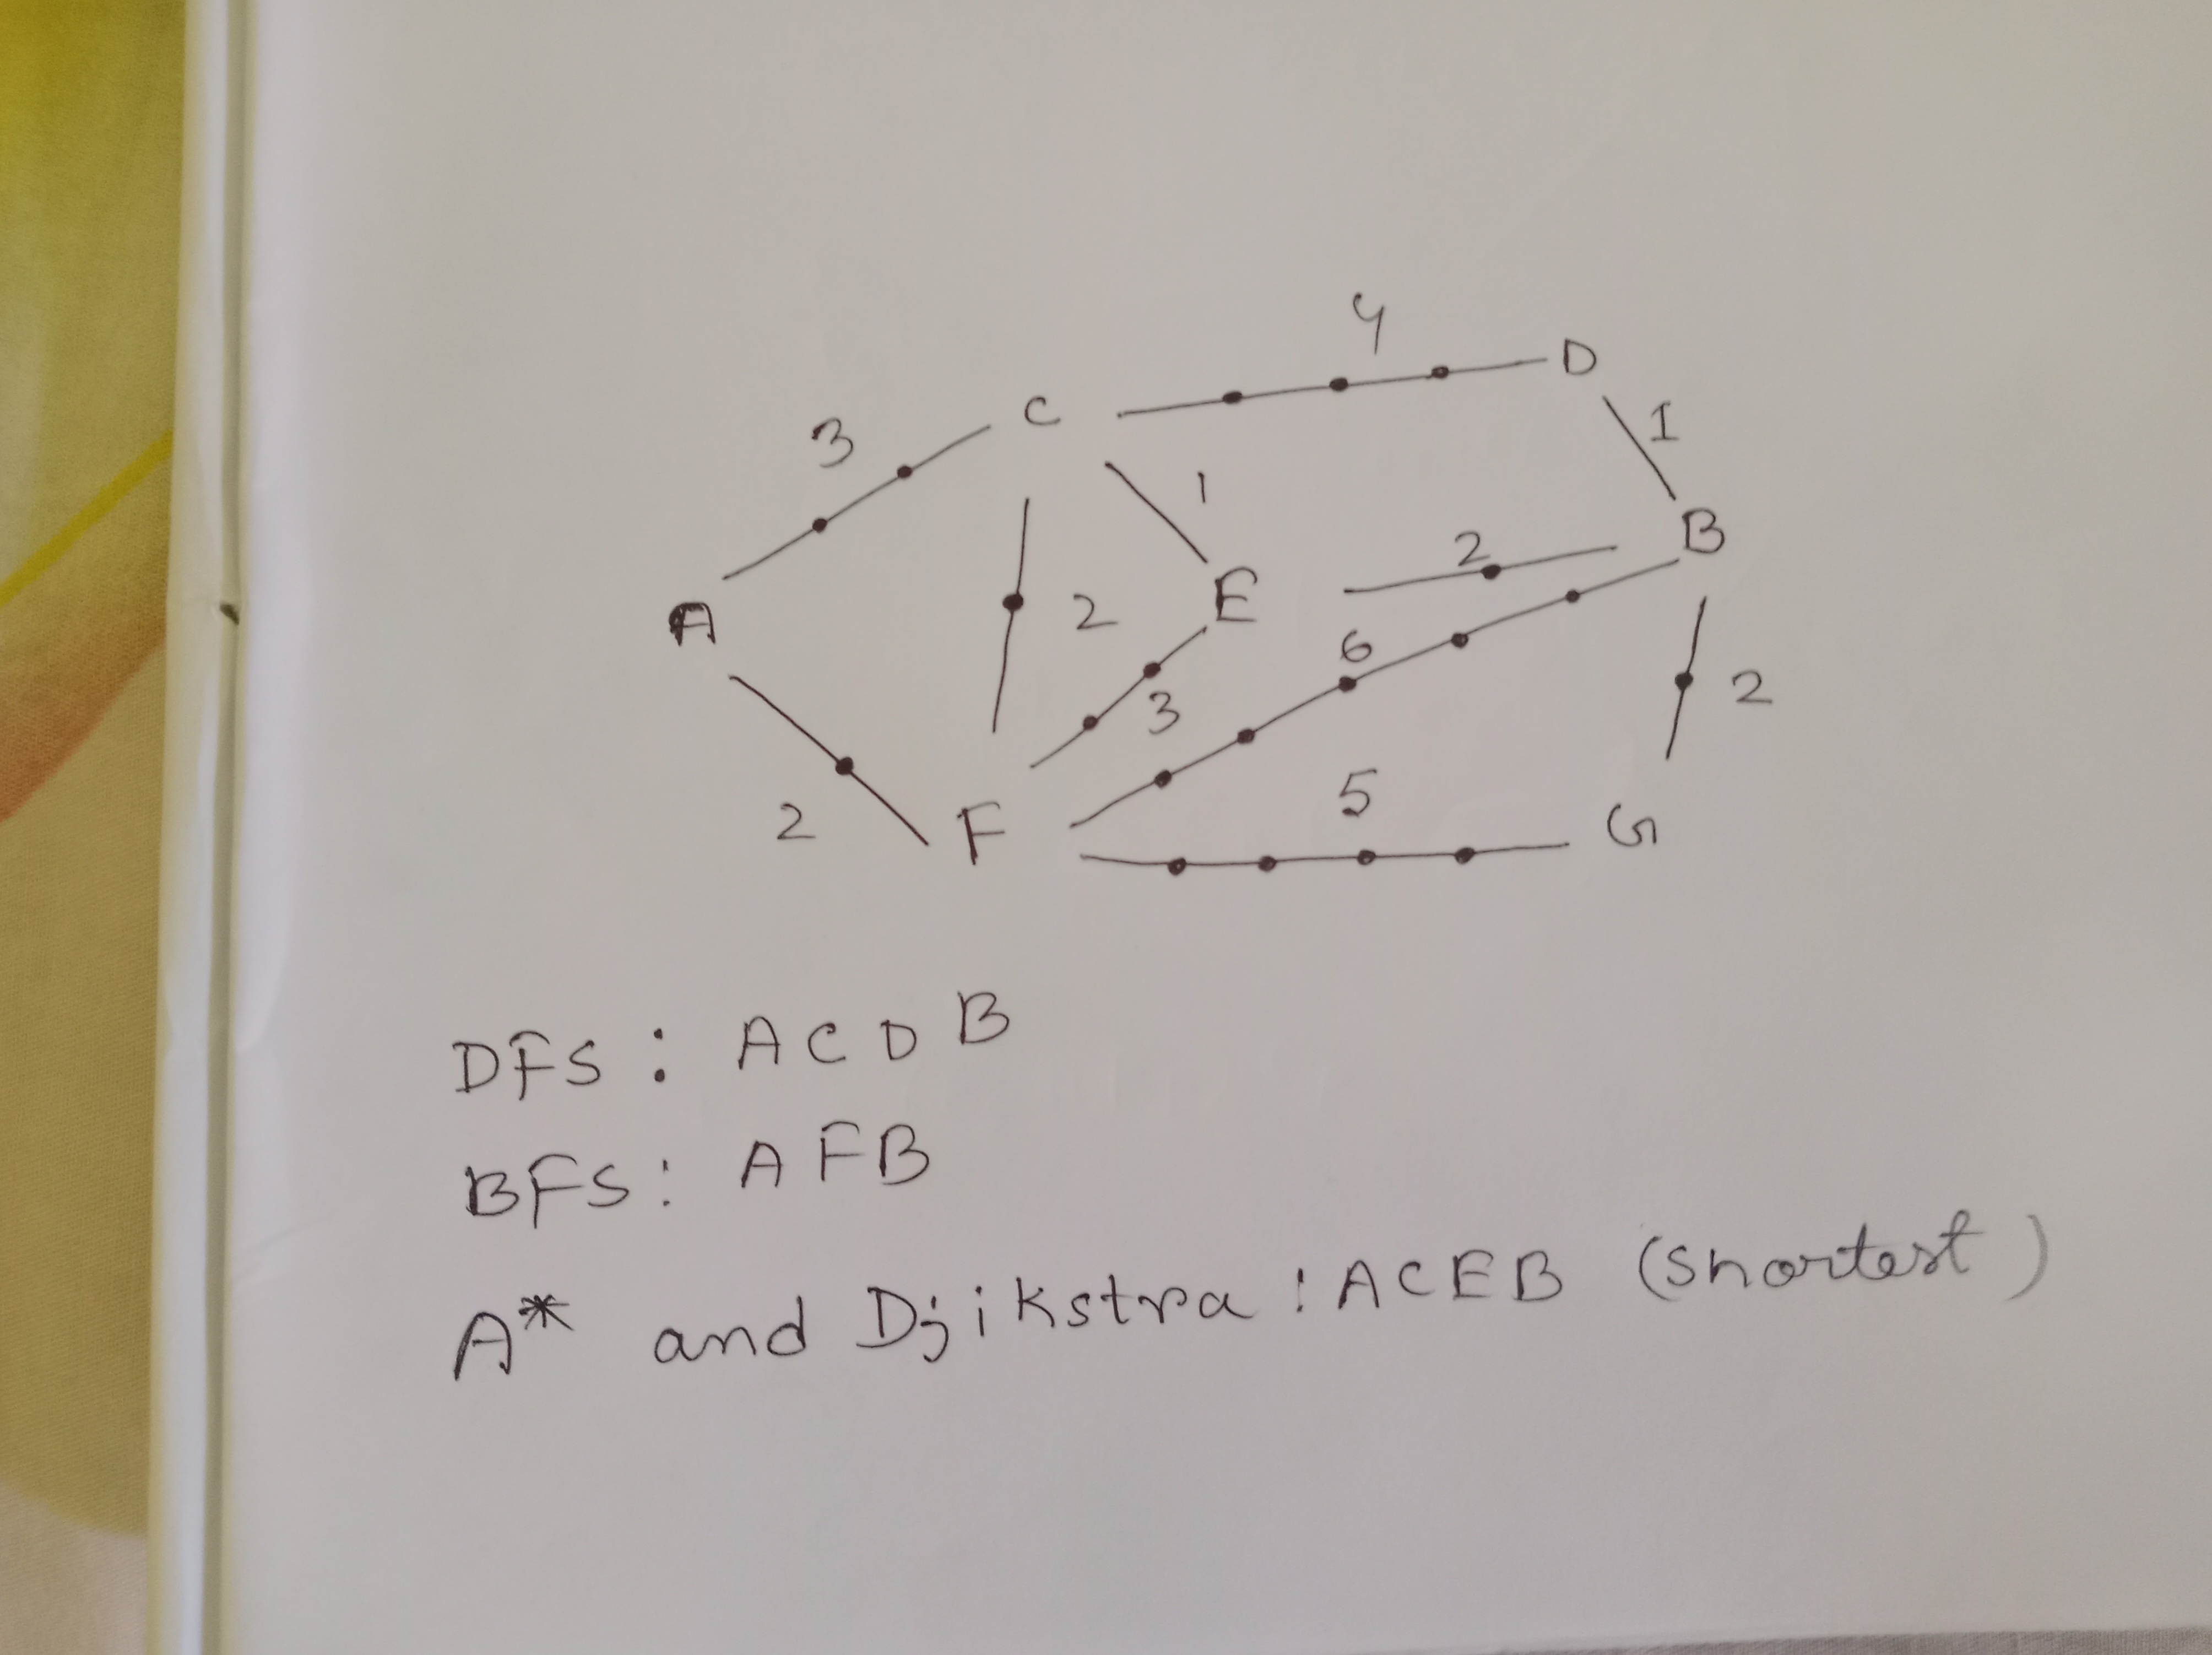 4
D
3
C
1
1
2
B
A
2
E
6
3
2
5
2
F
G
DFS : A C D B
BFS : A F B
A* and Djikstra : A C E B (Shortest)